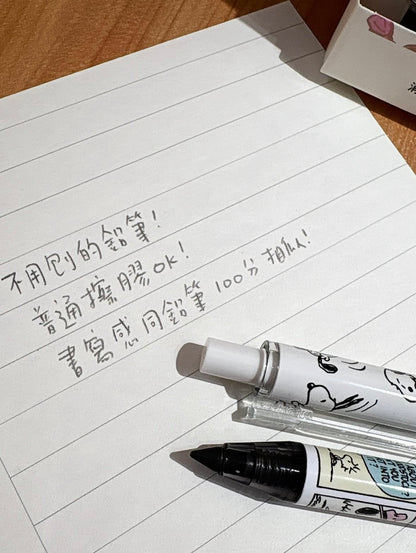 不用刨的鉛筆!
普通擦膠OK!
書寫感同鉛筆100分相似!
YOU
INTO
IT?